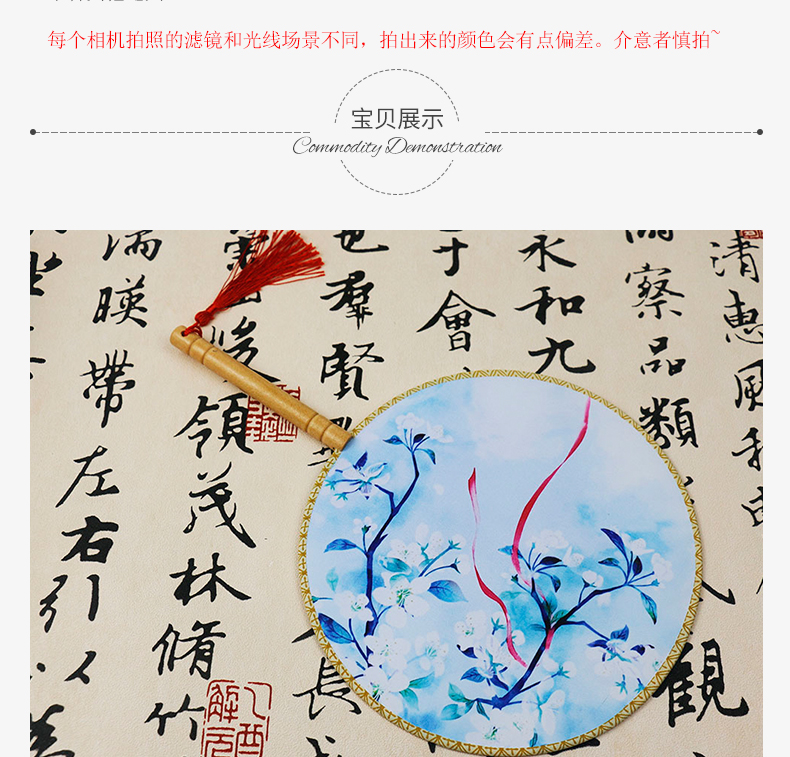 每个相机拍照的滤镜和光线场景不同，拍出来的颜色会有点偏差。介意者慎拍~
宝贝展示
Commodity Demonstration
清惠風和
察品類
觀
永和九
于會
也羣賢
長
峻領茂林脩竹
湍暎帶左右引
乙酉
解元